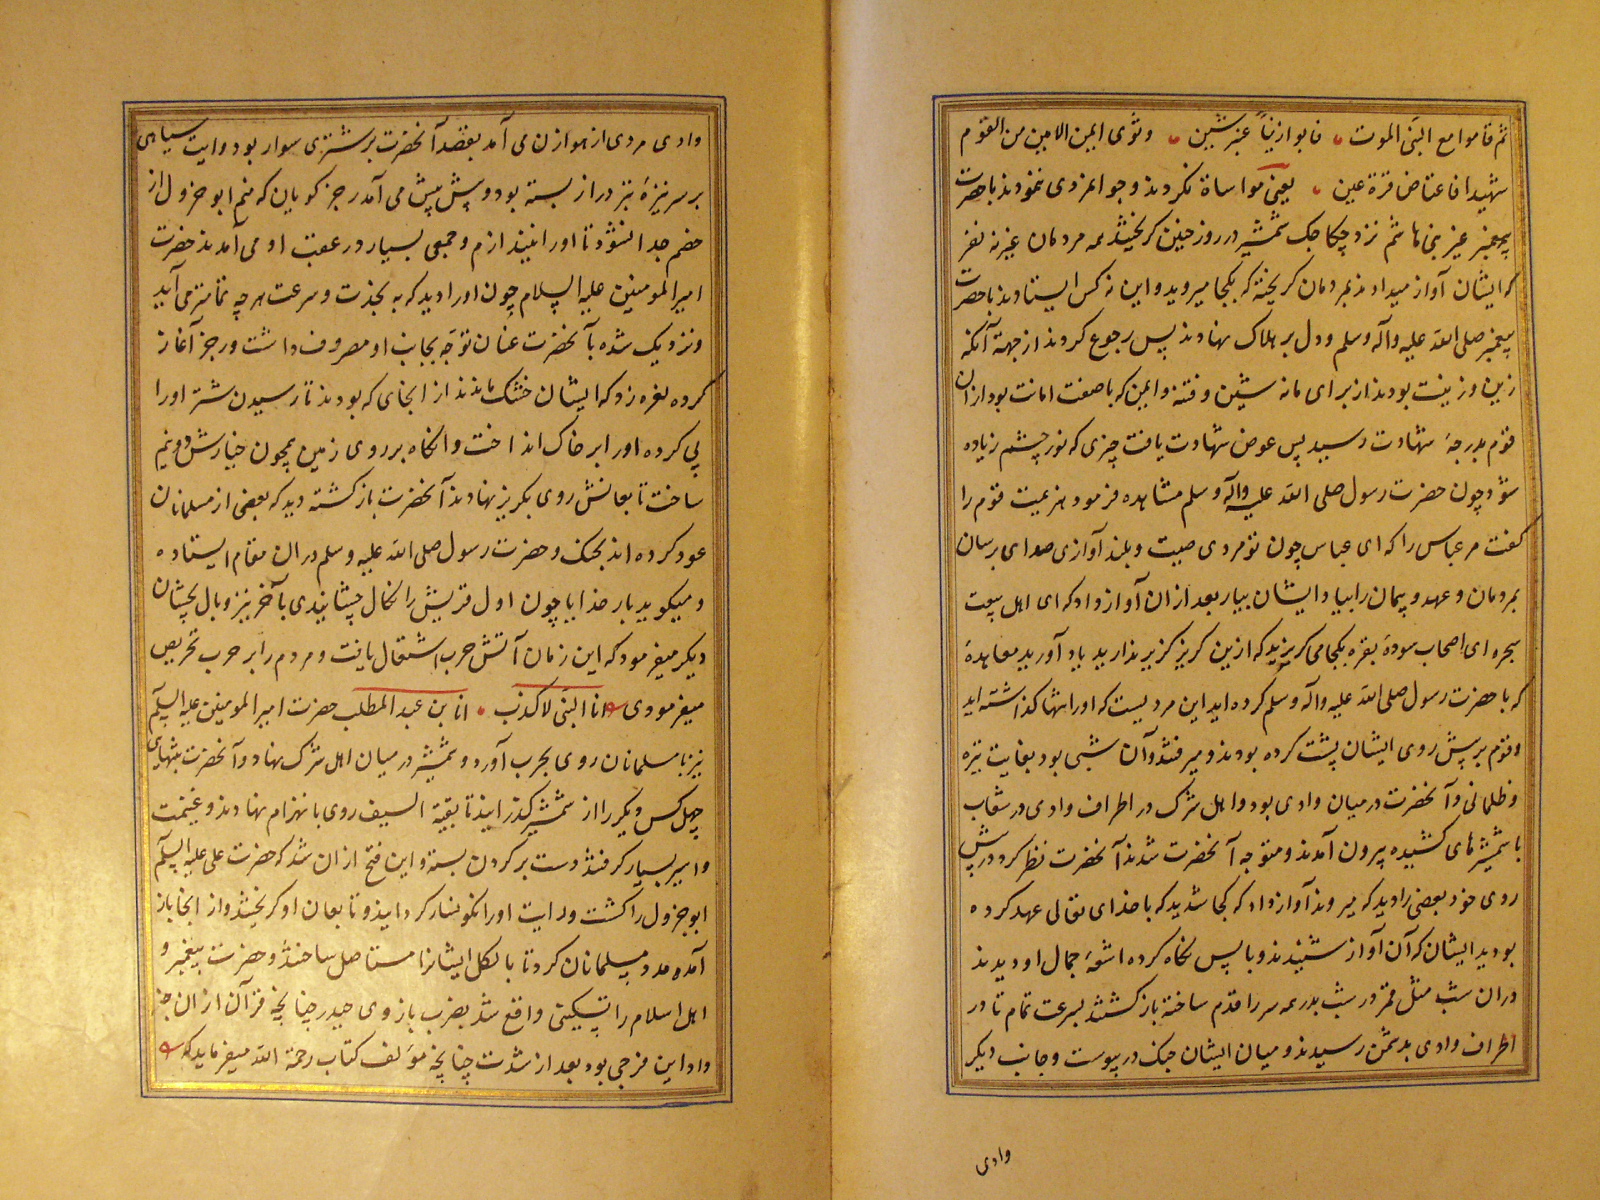 ثم قاموا مع النبی الموت فابوا زینا غیر شین و ثوی ایمن الامین من القوم
شهیدا فاعتاض قرة عین یعنی مواساة نکردند و جوانمردی ننمودند با حضرت
پیغمبر غیر بنی هاشم نزد چکاچک شمشیر در روز حنین کریختند همه مردمان غیر نه نفر
که ایشان آواز میدادند بمردمان کریخته که بکجا میروید و این نه کس ایستادند با حضرت
پیغمبر صلی الله علیه وآله وسلم و دل بر هلاک نهادند پس رجوع کردند از جهة آنکه
زین و زینت بودند از برای ما نه شین و فتنه و ایمن که با صفت امانت بود از ان
قوم بدرجهٔ شهادت رسید پس عوض شهادت یافت چیزی که نور چشم زیاده
شود چون حضرت رسول صلی الله علیه وآله وسلم مشاهده فرمود هزیمت قوم را
کفت مر عباس را که ای عباس چون تو مردی صیت و بلند آوازی صدای برسان
بمردمان و عهد و پیمان را بیاد ایشان بیار بعد از ان آواز داد که ای اهل بیعت
شجره ای اصحاب سورهٔ بقره بکجا می کریزید که ازین کریز کزیر ندارید یاد آورید معاهدهٔ
که با حضرت رسول صلی الله علیه وآله وسلم کرده اید این مردیست که او را تنها کذاشته اید
و قوم برپیش روی ایشان پشت کرده بودند و میرفتند و آن شبی بود بغایت تیره
و ظلمانی و آنحضرت در میان وادی بود و اهل شرک در اطراف وادی در شعاب
با شمشیرهای کشیده بیرون آمدند و متوجه آنحضرت شدند آنحضرت نظر کرد در پیش
روی خود بعضی را دید که میروند آواز داد که کجا شدید که با خدای تعالی عهد کرده
بودید ایشان که آن آواز شنیدند و باپس نکاه کرده اشعهٔ جمال او دیدند
در ان شب مثل قمر در شب بدر همه سر را قدم ساخته بازکشتند بسرعت تمام تا در
اطراف وادی بدشمن رسیدند و میان ایشان جنک در پیوست و جانب دیکر
وادی
وادی مردی از هوازن می آمد بقصد آنحضرت بر شتری سوار بود و رایت سیاهی
بر سر نیزهٔ دراز بسته بود و پیش پیش می آمد رجز کویان که منم ابو جرول از
خصم جدا نشود تا او را نیندازم و جمعی بسیار در عقب او می آمدند حضرت
امیرالمومنین علیه السلام چون او را دید که به بجدت و سرعت هر چه تمامتر می آید
و نزدیک شده بآنحضرت عنان توجه بجانب او مصروف داشت و رجز آغاز
کرده نعره زد که ایشان خشک ماندند از انجای که بودند تا رسیدن شتر او را
پی کرده او را بر خاک انداخت و انکاه بر روی زمین همچون خیارش دو نیم
ساخت تابعانش روی بکریز نهادند آنحضرت بازکشته دید که بعضی از مسلمانان
عود کرده اند بجنک و حضرت رسول صلی الله علیه وسلم در ان مقام ایستاده
و میکوید بار خدایا چون اول قریش را نکال چشانیدی باخر نیز وبال بچشان
دیکر میفرمود که این زمان آتش حرب اشتعال یافت و مردم را بر حرب تحریص
میفرمودی انا النبی لا کذب انا بن عبد المطلب حضرت امیرالمومنین علیه السلم
نیز با مسلمانان روی بحرب آورد و شمشیر در میان اهل شرک نهاد و آنحضرت بتنهای
چهل کس دیکر را از شمشیر کذرانید تا بقیة السیف روی بانهزام نهادند و غنیمت
و اسیر بسیار کرفتند دست بر کردن بسته و این فتح از ان شد که حضرت علی علیه السلم
ابو جرول را کشت و رایت او را نکونسار کردانید و تابعان او کریختند و از انجا باز
آمده مدد مسلمانان کرد تا بالکل ایشانرا مستاصل ساختند و حضرت پیغمبر و
اهل اسلام را تسکینی واقع شد بضرب بازوی حیدر چنانچه قرآن از ان خبر
داد این فرجی بود بعد از شدت چنانچه مؤلف کتاب رحمة الله میفرماید که